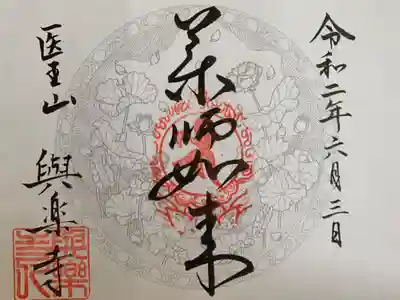 令和二年六月三日
薬師如来
医王山
與楽寺